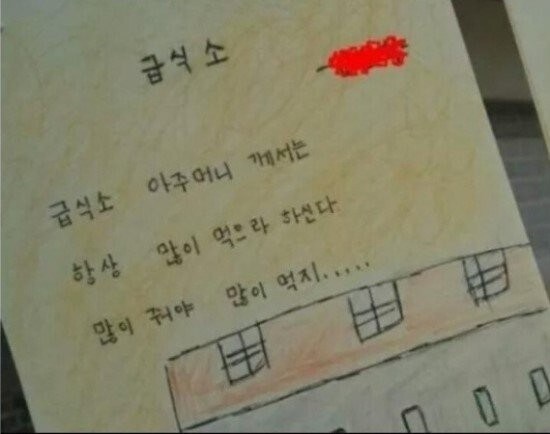 급식소
급식소 아주머니 께서는
항상 많이 먹으라 하신다
많이 줘야 많이 먹지.....